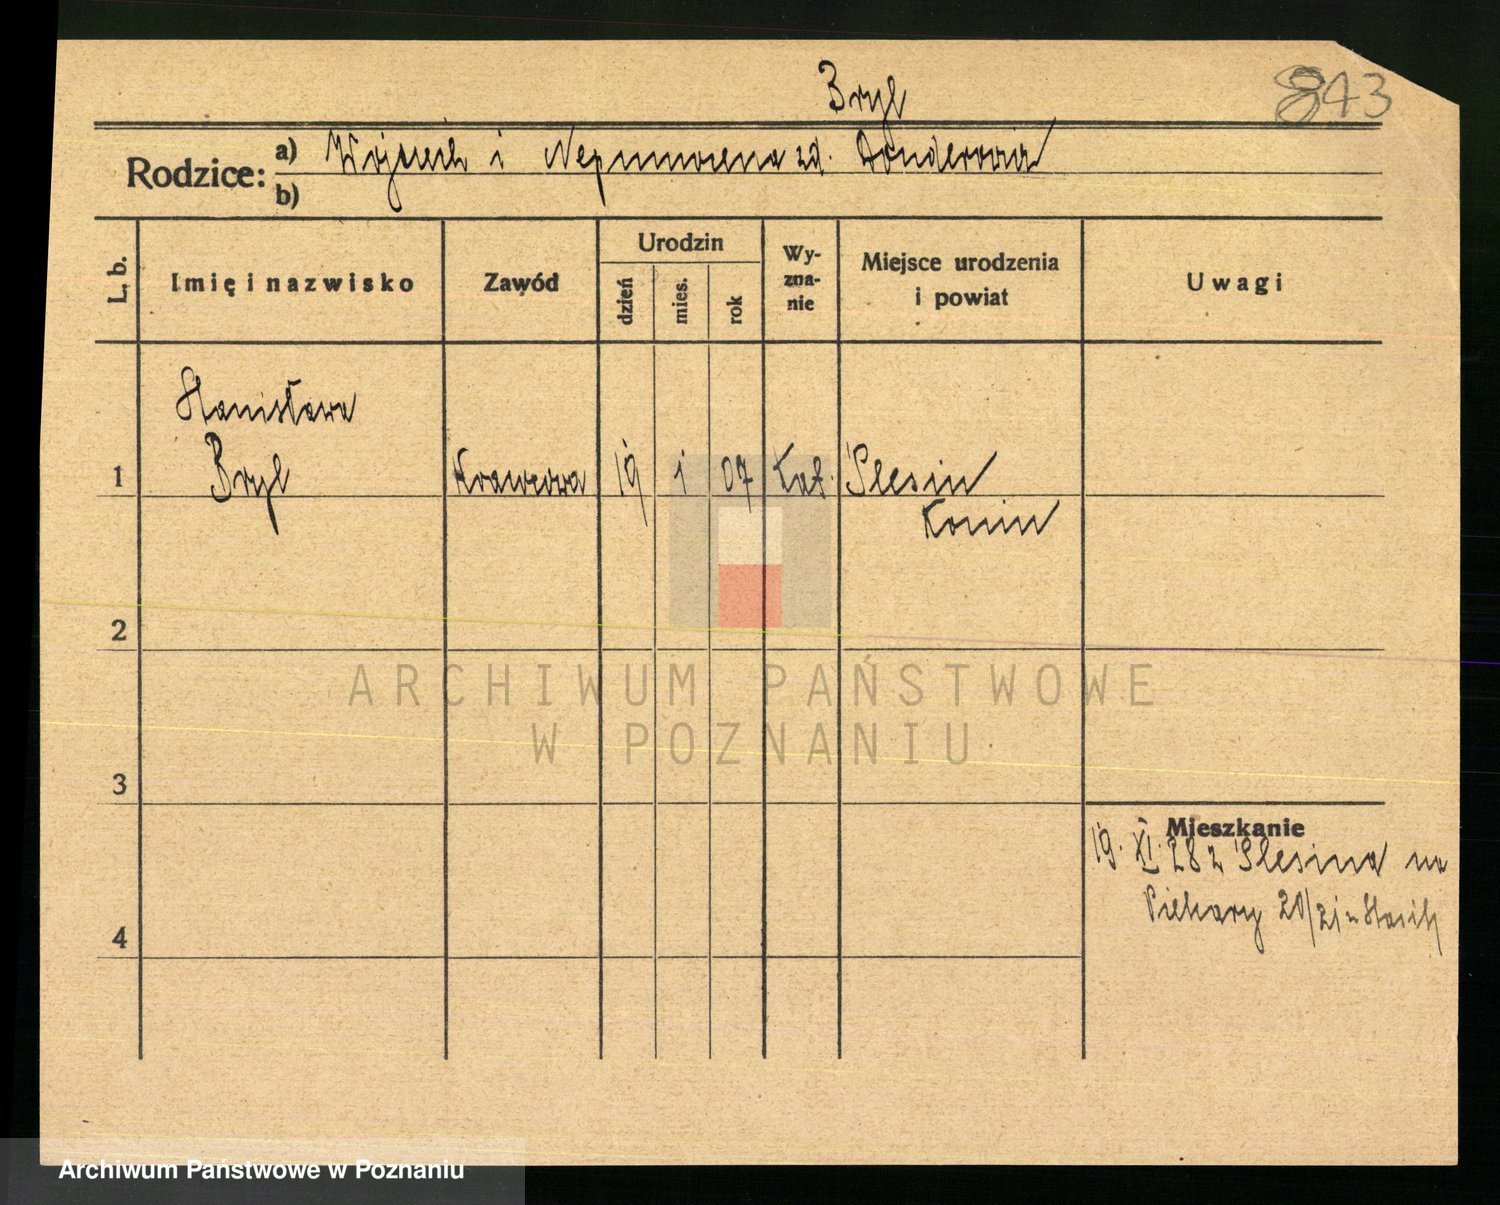 Bryl
843
Rodzice: a) Wojciech i Nepomucena zd. Donderowicz
b)
L. b.
Imię i nazwisko
Zawód
Urodzin
dzień
mies.
rok
Wy-
zna-
nie
Miejsce urodzenia
i powiat
Uwagi
Stanisława
1 Bryl Krawcowa 19 1 07 Kat. Ślesin
Konin
2
3
4
Mieszkanie
19. XI. 28 z Ślesina na
Piekary 20/21 u
ARCHIWUM PAŃSTWOWE
W POZNANIU
Archiwum Państwowe w Poznaniu